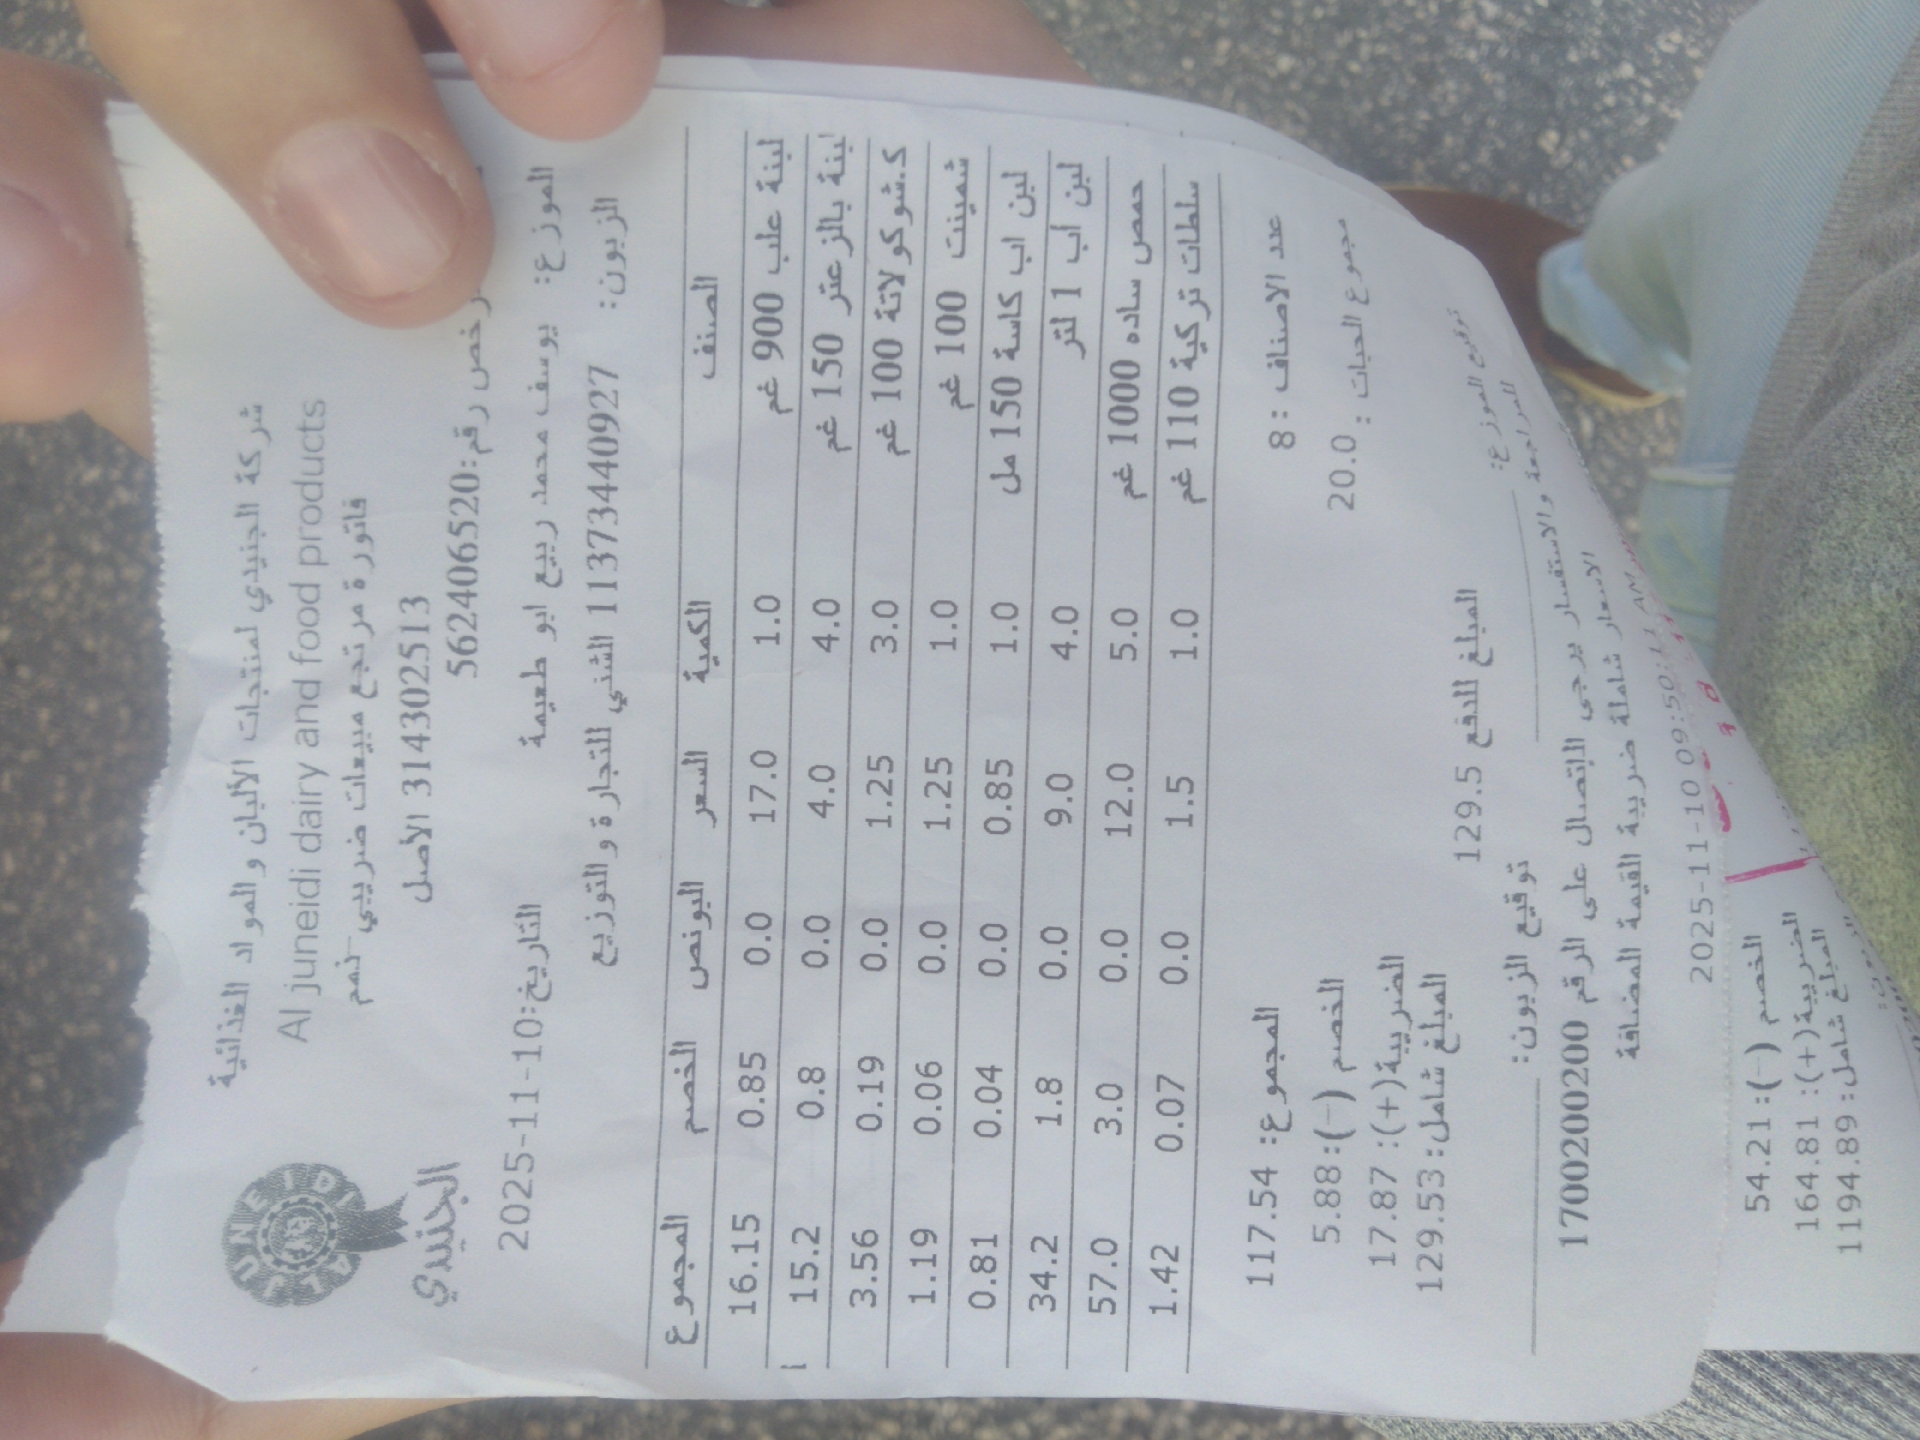 شركة الجنيدي لمنتجات الألبان والمواد الغذائية
Al juneidi dairy and food products
AL JUNEIDI
الجنيدي
فاتورة مرتجع مبيعات ضريبي -نهم
3143025133 الاصل
رخص رقم:562406520
التاريخ:2025-11-10
الموزع: يوسف محمد ربيع ابو طعيمة
الزبون: 1137344092 الشني للتجارة والتوزيع
الصنف الكمية السعر البونص الخصم المجموع
لبنة علب 900 غم 1.0 17.0 0.0 0.85 16.15
لبنة بالزعتر 150 غم 4.0 4.0 0.0 0.8 15.2
ك.شوكولاتة 100 غم 3.0 1.25 0.0 0.19 3.56
شمينت 100 غم 1.0 1.25 0.0 0.06 1.19
لبن اب كاسة 150 مل 1.0 0.85 0.0 0.04 0.81
لبن اب 1 لتر 4.0 9.0 0.0 1.8 34.2
حمص ساده 1000 غم 5.0 12.0 0.0 3.0 57.0
سلطات تركية 110 غم 1.0 1.5 0.0 0.07 1.42
عدد الاصناف : 8
المجموع: 117.54
مجموع الحبات : 20.0
الخصم (-): 5.88
الضريبة(+): 17.87
المبلغ شامل: 129.53
المبلغ للدفع 129.5
توقيع الموزع:
توقيع الزبون:
للمراجعة والاستفسار يرجى الإتصال على الرقم 1700200200
الاسعار شاملة ضريبة القيمة المضافة
2025-11-10 09:50:11 AM
الخصم (-): 54.21
الضريبة(+): 164.81
المبلغ شامل: 1194.89